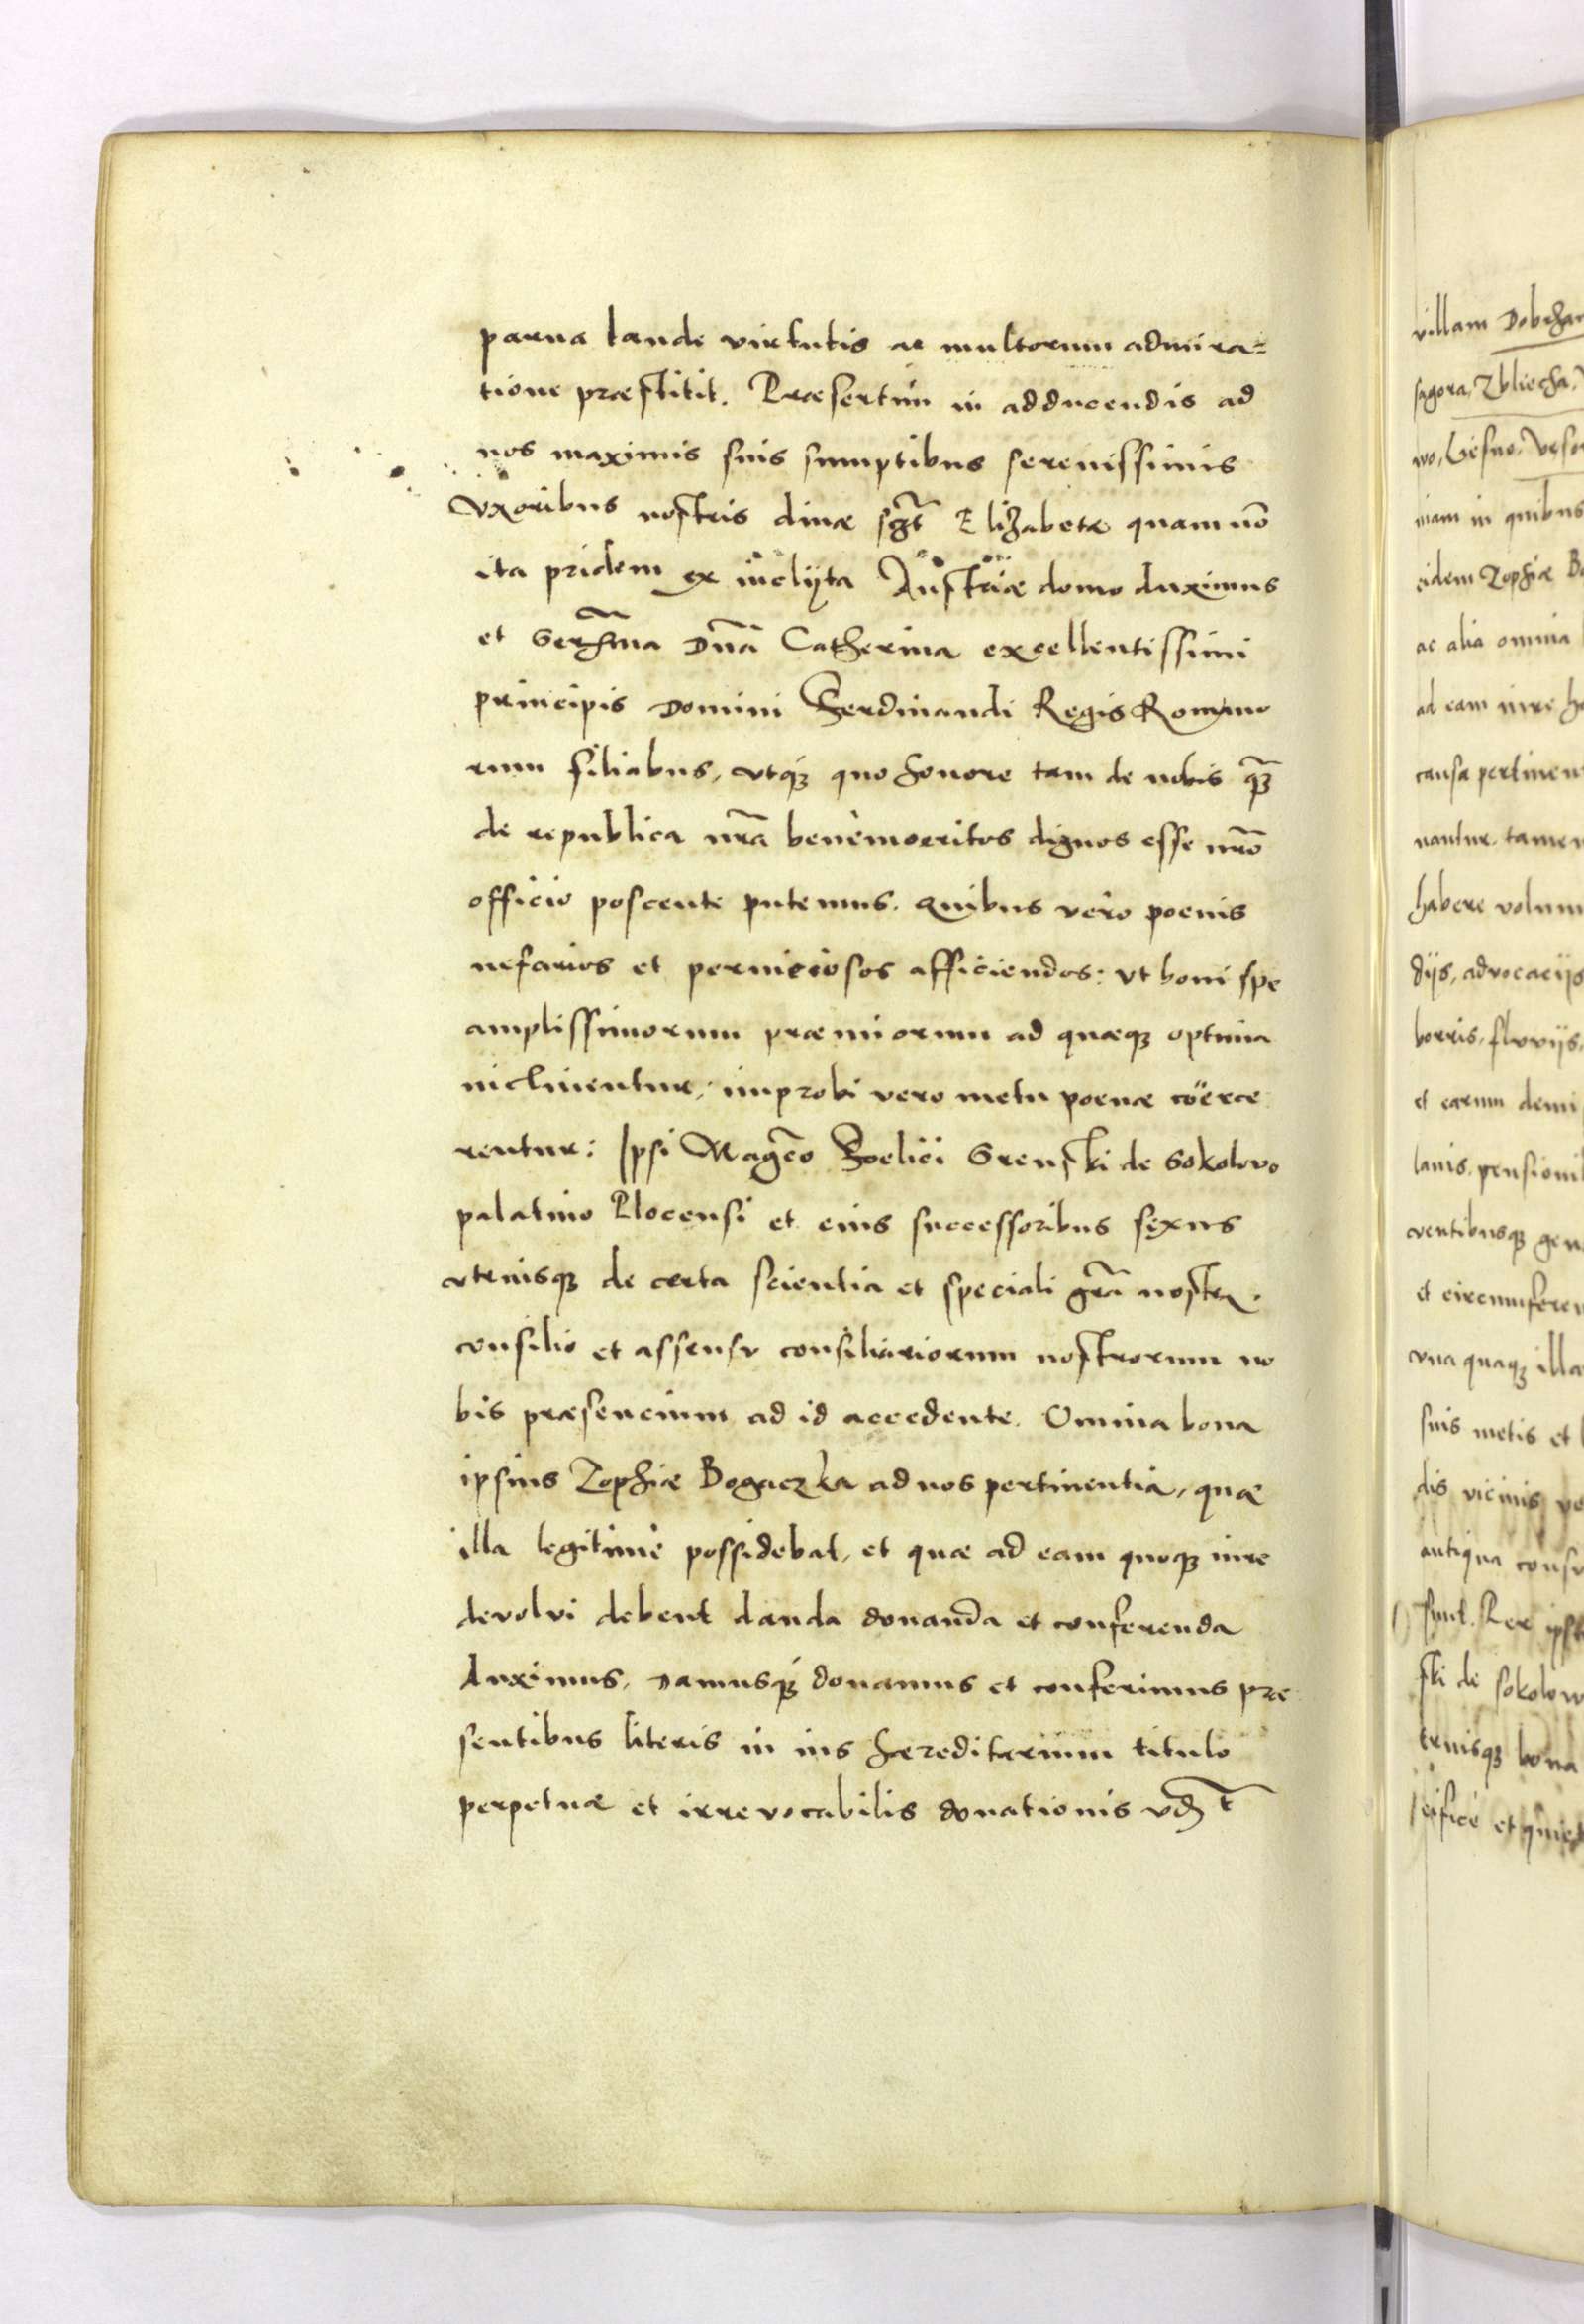 parua laude virtutis ac multorum admira=
tione præstitit. Præsertim in adducendis ad
nos maximis suis sumptibus serenissimis
vxoribus nostris diuæ sgt̃ Elizabetæ quam nõ
ita pridem ex inclyta Austriæ domo duximus
et Ser̃ma Dñã Catherina excellentissimi
principis Domini Ferdinandi Regis Romano
rum filiabus, vtqꝫ quo honore tam de nobis q̃ꝫ
de republica nr̃a benèmoeritos dignos esse nr̃o
officio poscente putemus. Quibus vero poenis
nefarios et perniciosos afficiendos: vt boni spe
amplissimorum præmiorum ad quæqꝫ optima
inclinentur, improbi vero metu poenæ coërce
rentur: Ipsi Magc̃o Foelici Srenski de Sokolovo
palatino Plocensi et eius successoribus sexus
vtriusqꝫ de certa scientia et speciali gr̃a nostra.
consilio et assensv consiliariorum nostrorum no
bis præsencium ad id accedente. Omnia bona
ipsius Zophiæ Bogaczka ad nos pertinentia, quæ
illa legitimè possidebat, et quæ ad eam quoqꝫ iure
devolvi debent danda donanda et conferenda
duximus, Damusqꝫ donamus et conferimus præ
sentibus literis in ius hæreditarium titulo
perpetuæ et irrevocabilis donationis
villam
sagora, Zbliecha,
wo,
niam in quibus
eidem Zophiæ
ac alia omnia
ad eam iure
causa
nantur. tamen
habere
dijs, advocacijs
borris, flvvijs,
et earum
lanis,

et
vna quaqꝫ illa
suis metis et
dis vicinis
antiqua
sunt.
ski de Sokolow
triusqꝫ bona
et